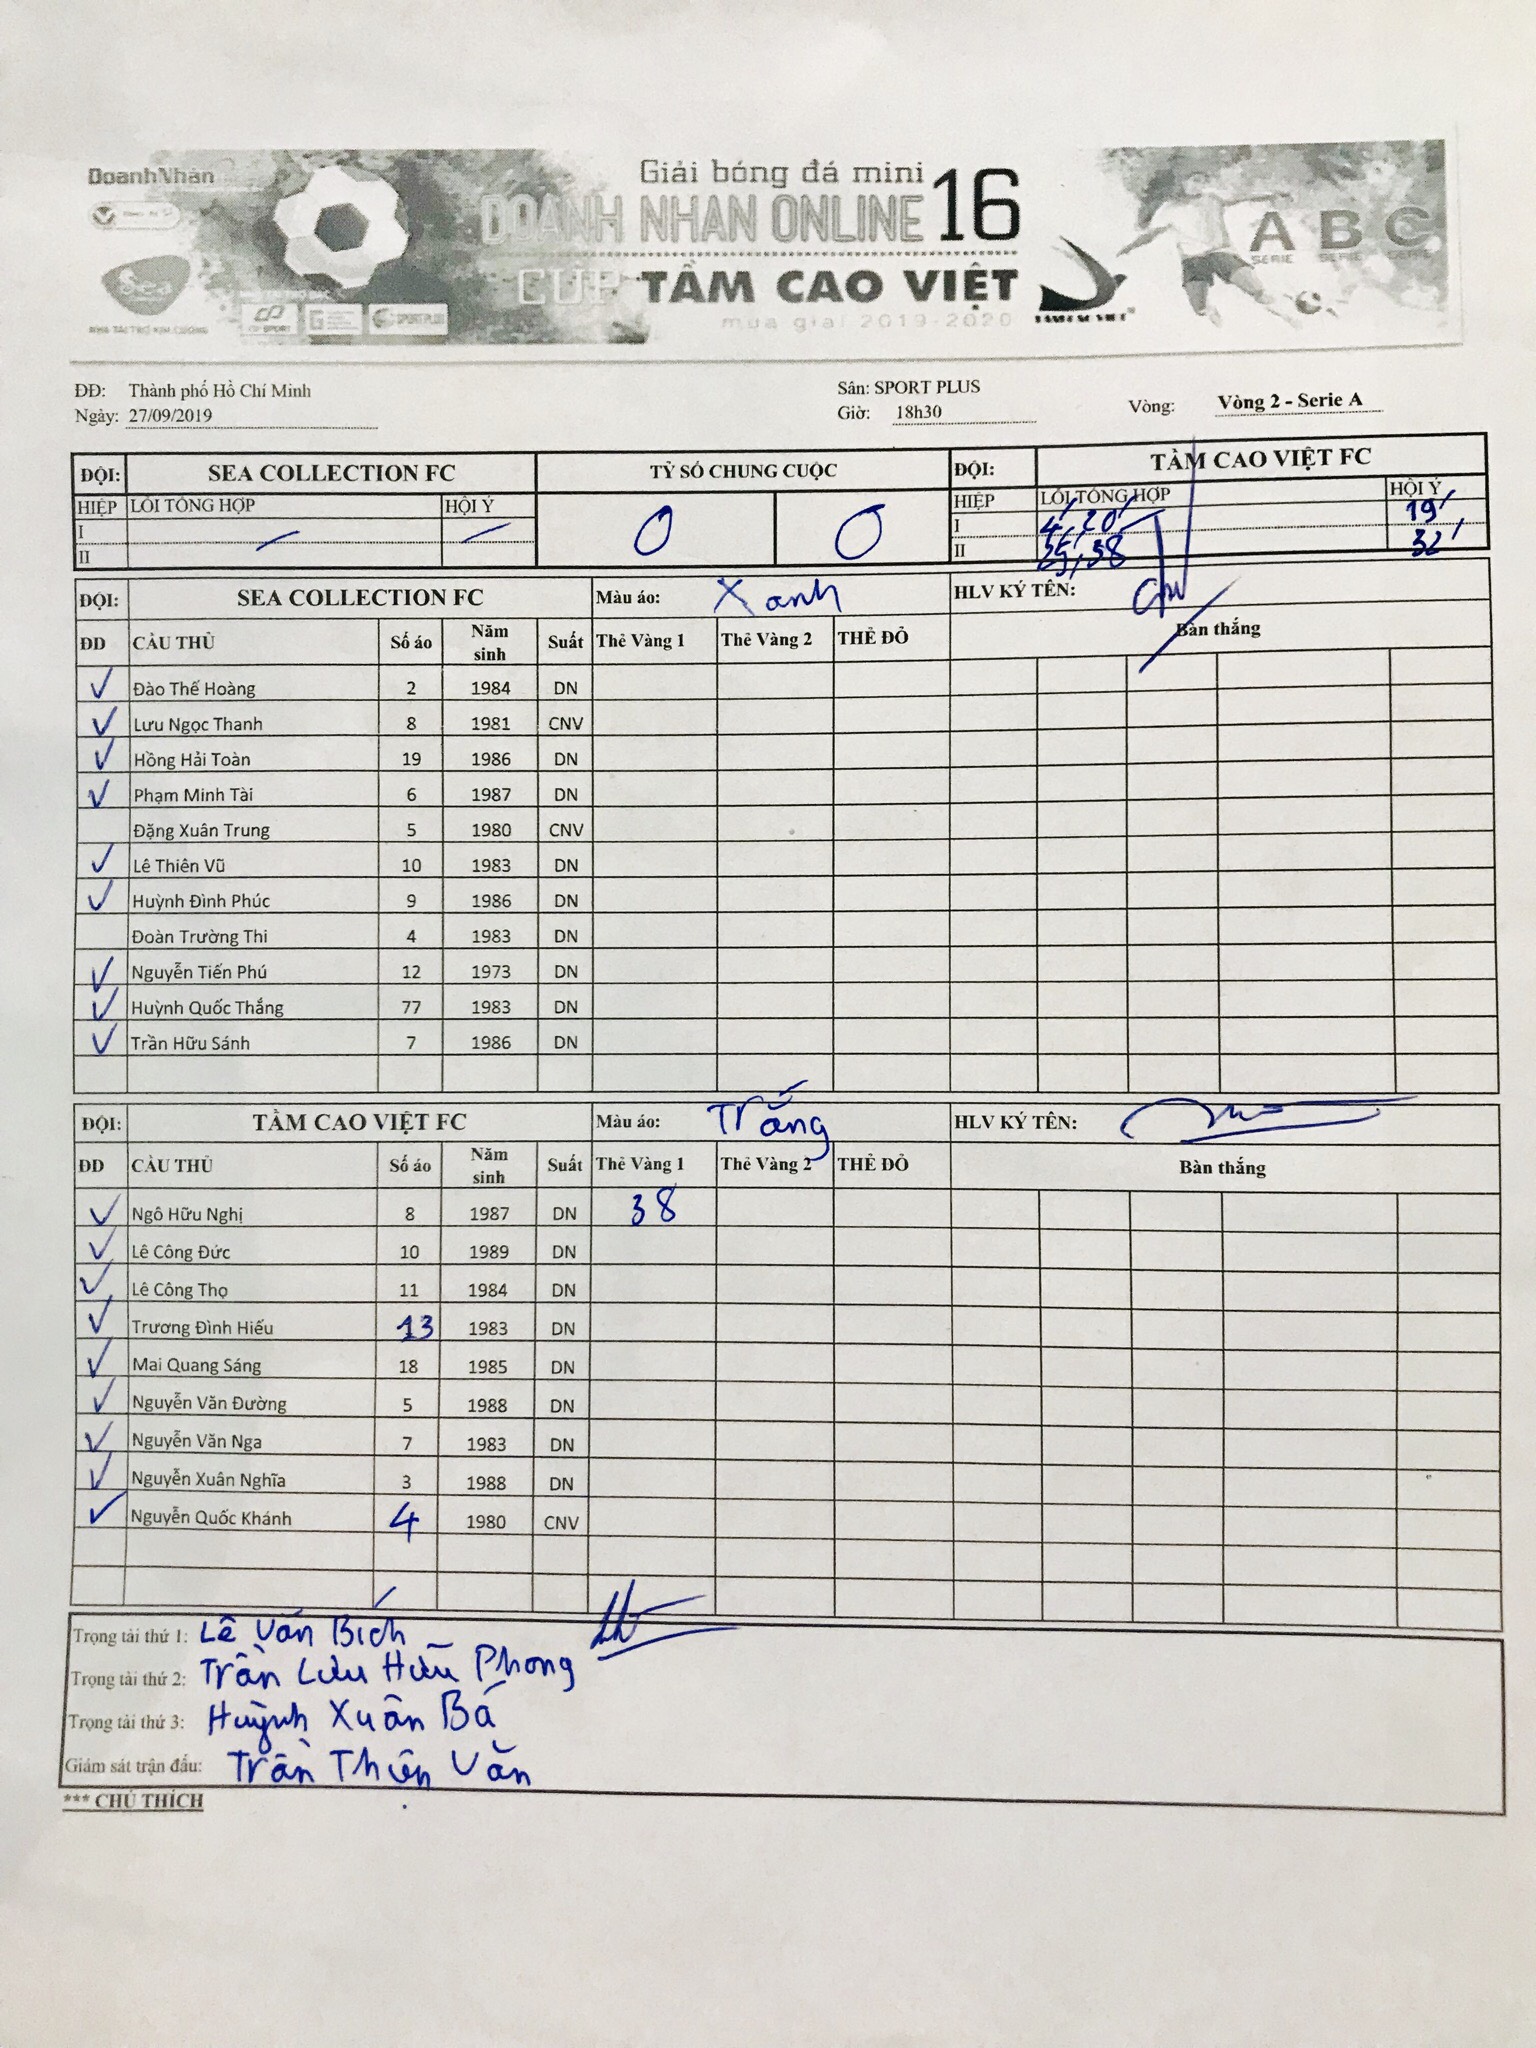 DoanhNhân
Giải bóng đá mini
DOANH NHAN ONLINE 16
CÚP TẦM CAO VIỆT
mùa giải 2019-2020
Sea
NHÀ TÀI TRỢ KIM CƯƠNG
SPORT PLUS
A B C
SERIE SERIE SERIE
ĐĐ: Thành phố Hồ Chí Minh Sân: SPORT PLUS
Ngày: 27/09/2019 Giờ: 18h30 Vòng: Vòng 2 - Serie A
ĐỘI: SEA COLLECTION FC TỶ SỐ CHUNG CUỘC ĐỘI: TẦM CAO VIỆT FC
HIỆP LỖI TỔNG HỢP HỘI Ý 0 0 HIỆP LỖI TỔNG HỢP HỘI Ý
I — — I 4', 20' 19'
II II 25', 38 32'
ĐỘI: SEA COLLECTION FC Màu áo: Xanh HLV KÝ TÊN:
ĐD CẦU THỦ Số áo Năm sinh Suất Thẻ Vàng 1 Thẻ Vàng 2 THẺ ĐỎ Bàn thắng
✓ Đào Thế Hoàng 2 1984 DN
✓ Lưu Ngọc Thanh 8 1981 CNV
✓ Hồng Hải Toàn 19 1986 DN
✓ Phạm Minh Tài 6 1987 DN
Đặng Xuân Trung 5 1980 CNV
✓ Lê Thiên Vũ 10 1983 DN
✓ Huỳnh Đình Phúc 9 1986 DN
Đoàn Trường Thi 4 1983 DN
✓ Nguyễn Tiến Phú 12 1973 DN
✓ Huỳnh Quốc Thắng 77 1983 DN
✓ Trần Hữu Sánh 7 1986 DN
ĐỘI: TẦM CAO VIỆT FC Màu áo: Trắng HLV KÝ TÊN:
ĐD CẦU THỦ Số áo Năm sinh Suất Thẻ Vàng 1 Thẻ Vàng 2 THẺ ĐỎ Bàn thắng
✓ Ngô Hữu Nghị 8 1987 DN 38
✓ Lê Công Đức 10 1989 DN
✓ Lê Công Thọ 11 1984 DN
✓ Trương Đình Hiếu 13 1983 DN
✓ Mai Quang Sáng 18 1985 DN
✓ Nguyễn Văn Đường 5 1988 DN
✓ Nguyễn Văn Nga 7 1983 DN
✓ Nguyễn Xuân Nghĩa 3 1988 DN
✓ Nguyễn Quốc Khánh 4 1980 CNV
Trọng tài thứ 1: Lê Văn Bích
Trọng tài thứ 2: Trần Lưu Hữu Phong
Trọng tài thứ 3: Huỳnh Xuân Bá
Giám sát trận đấu: Trần Thiện Văn
*** CHÚ THÍCH